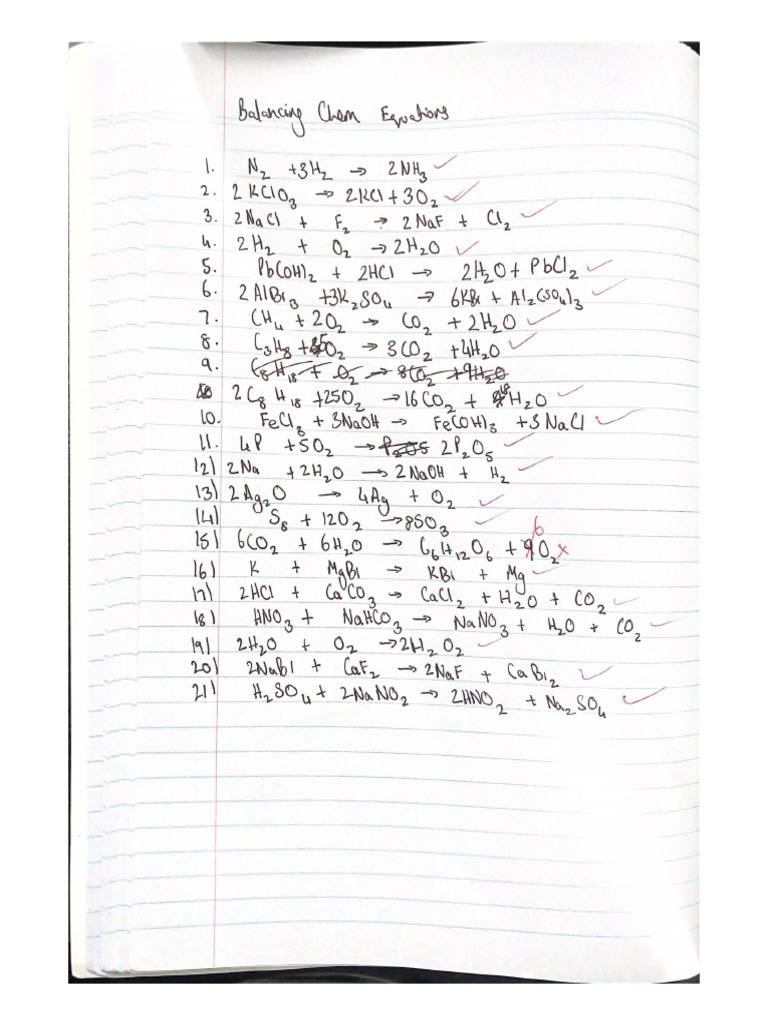 Balancing Chem Equations
1. N₂ + 3H₂ → 2NH₃ ✓
2. 2KClO₃ → 2KCl + 3O₂ ✓
3. 2NaCl + F₂ → 2NaF + Cl₂ ✓
4. 2H₂ + O₂ → 2H₂O ✓
5. Pb(OH)₂ + 2HCl → 2H₂O + PbCl₂ ✓
6. 2AlBr₃ + 3K₂SO₄ → 6KBr + Al₂(SO₄)₃ ✓
7. CH₄ + 2O₂ → CO₂ + 2H₂O ✓
8. C₃H₈ + 5O₂ → 3CO₂ + 4H₂O ✓
9. C₈H₁₈ + O₂ → 8CO₂ + 9H₂O
2C₈H₁₈ + 25O₂ → 16CO₂ + 18H₂O ✓
10. FeCl₃ + 3NaOH → Fe(OH)₃ + 3NaCl ✓
11. 4P + 5O₂ → P₂O5 2P₂O₅ ✓
12) 2Na + 2H₂O → 2NaOH + H₂ ✓
13) 2Ag₂O → 4Ag + O₂ ✓
14) S₈ + 12O₂ → 8SO₃ ✓
6
15) 6CO₂ + 6H₂O → C₆H₁₂O₆ + 9O₂ ×
16) K + MgBr → KBr + Mg ✓
17) 2HCl + CaCO₃ → CaCl₂ + H₂O + CO₂ ✓
18) HNO₃ + NaHCO₃ → NaNO₃ + H₂O + CO₂ ✓
19) 2H₂O + O₂ → 2H₂O₂ ✓
20) 2NaBr + CaF₂ → 2NaF + CaBr₂ ✓
21) H₂SO₄ + 2NaNO₂ → 2HNO₂ + Na₂SO₄ ✓